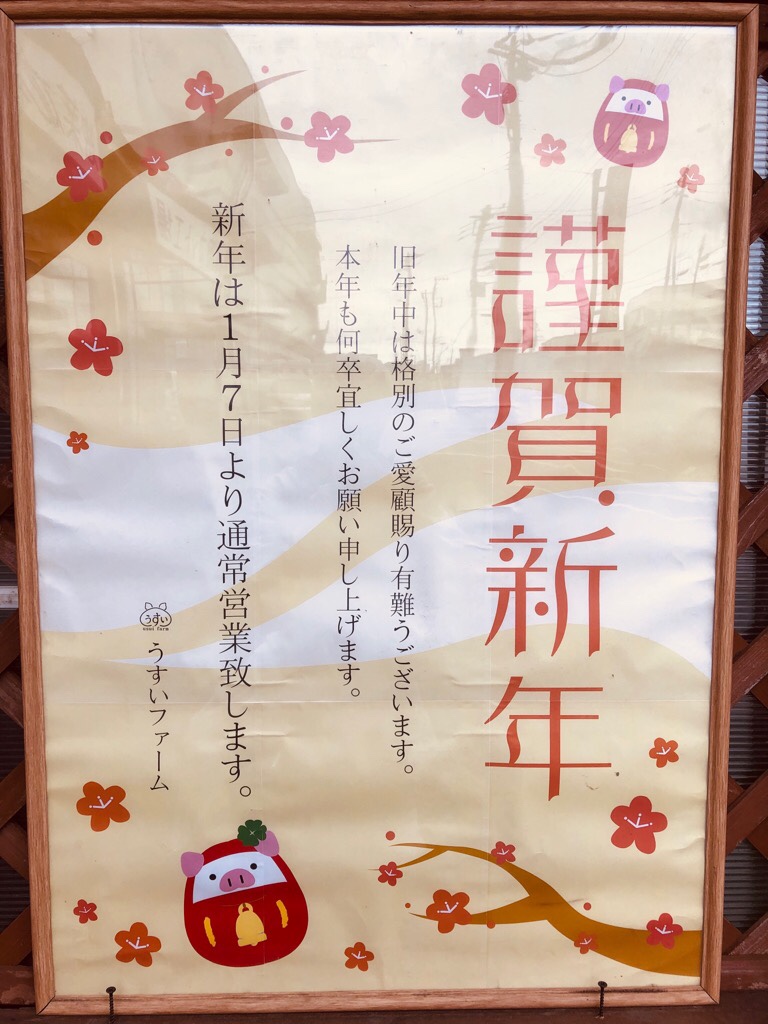 謹賀新年
旧年中は格別のご愛顧賜り有難うございます。
本年も何卒宜しくお願い申し上げます。
新年は1月7日より通常営業致します。
うすい
USUI FARM
うすいファーム